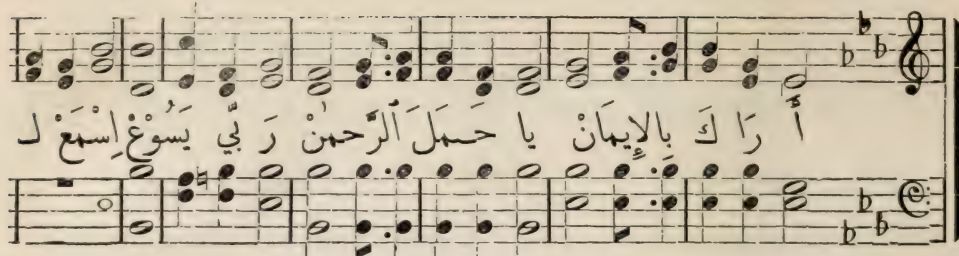 أَ رَا كَ بِالإِيمَانْ يا حَـمَلَ ٱلرَّحمٰنْ رَ بِّي يَسُوْعْ اِسْمَعْ لـ